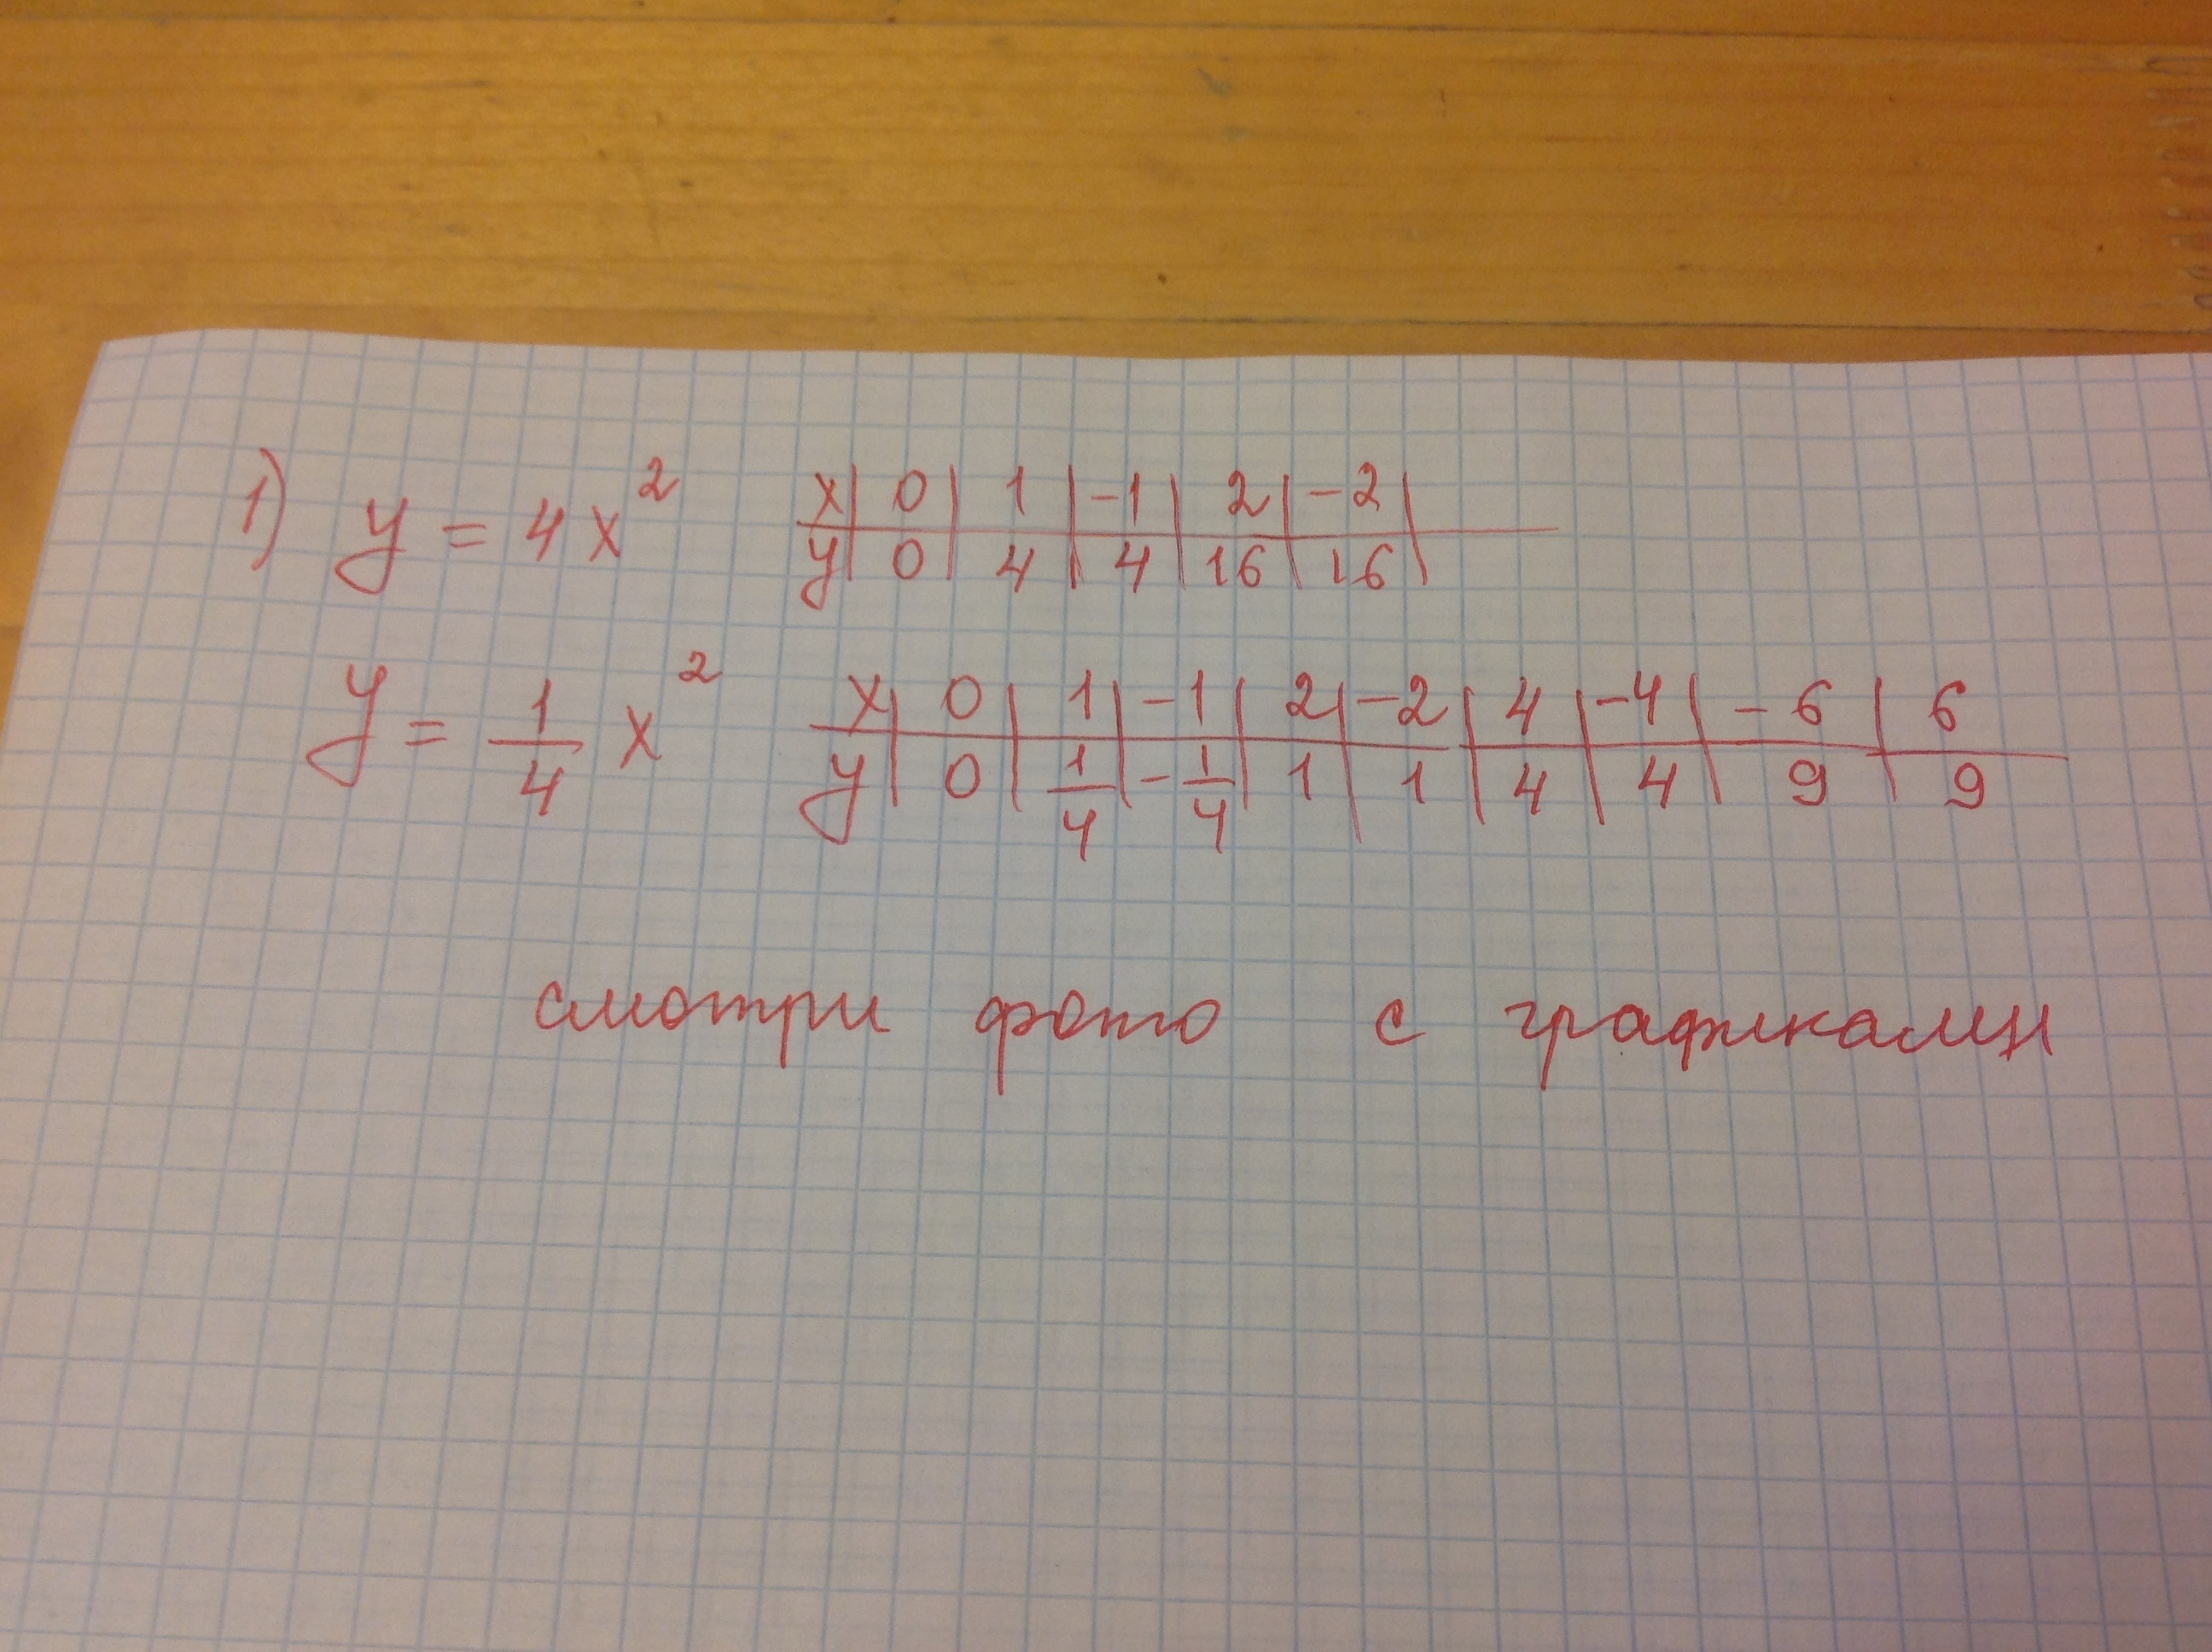 1) y = 4x² x | 0 | 1 | -1 | 2 | -2 |
y | 0 | 4 | 4 | 16 | 16 |
y = 1/4 x² x | 0 | 1 | -1 | 2 | -2 | 4 | -4 | -6 | 6
y | 0 | 1/4 | -1/4 | 1 | 1 | 4 | 4 | 9 | 9
смотри фото с графиками